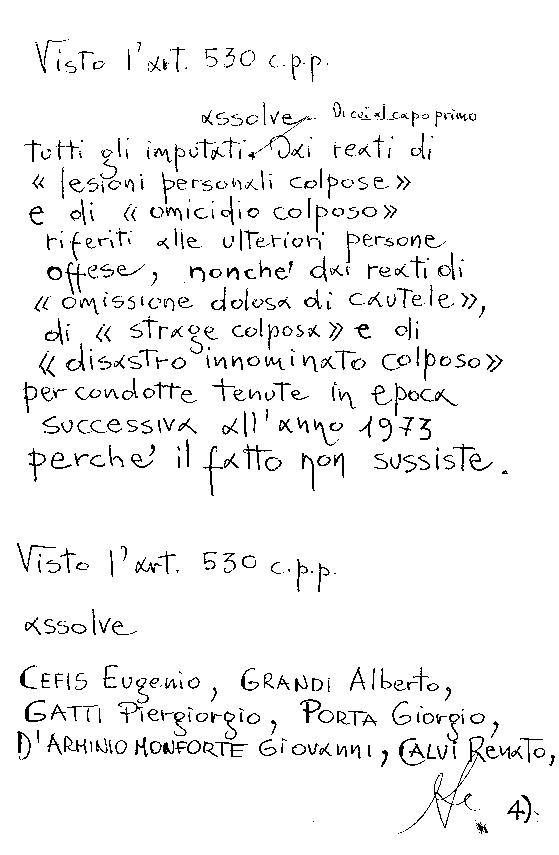 Visto l'art. 530 c.p.p.
assolve Di cui al capo primo
tutti gli imputati. Dai reati di
« lesioni personali colpose »
e di « omicidio colposo »
riferiti alle ulteriori persone
offese, nonche' dai reati di
« omissione dolosa di cautele »,
di « strage colposa » e di
« disastro innominato colposo »
per condotte tenute in epoca
successiva all'anno 1973
perche' il fatto non sussiste.
Visto l'art. 530 c.p.p.
assolve
CEFIS Eugenio, GRANDI Alberto,
GATTI Piergiorgio, PORTA Giorgio,
D'ARMINIO MONFORTE Giovanni, CALVI Renato,
4).